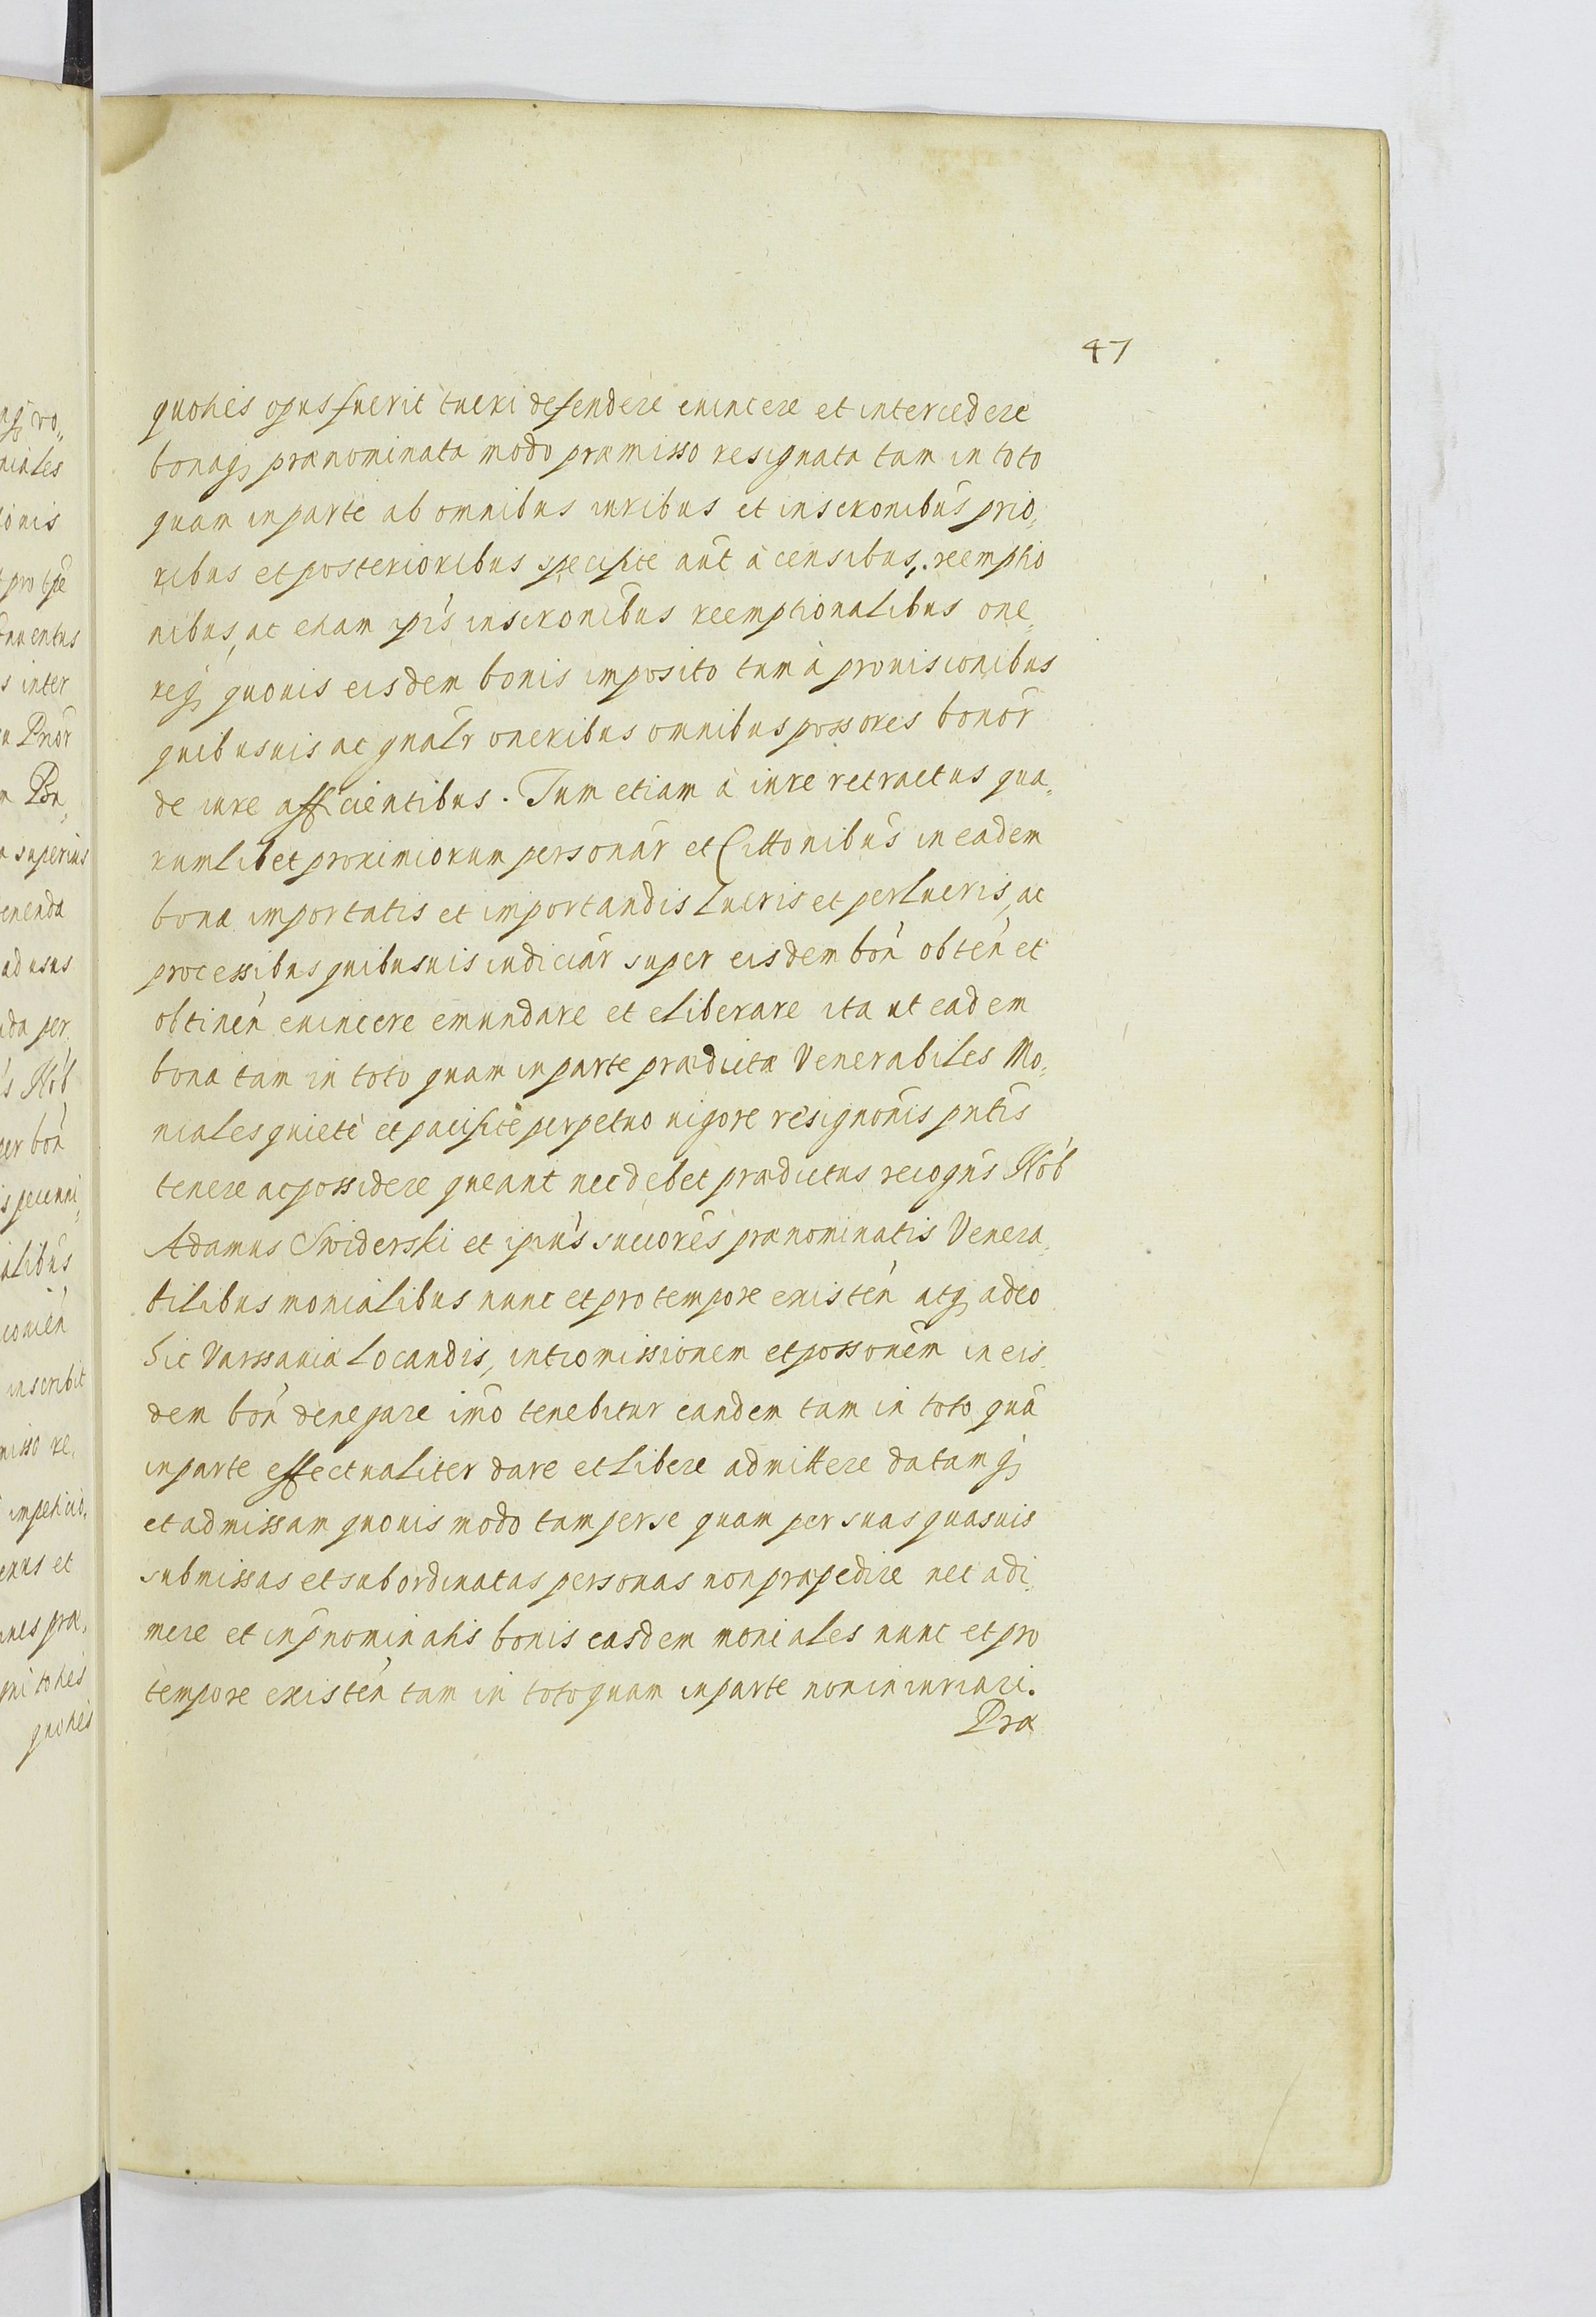 47
quoties opus fuerit tueri defendere euincere et intercedere
bonaq, prænominata modo præmisso resignata tam in toto
quam in parte ab omnibus iuribus et inscrōnibus prio,
ribus et posterioribus specifice aūt à censibus, reemptio
nibus, ac etiam ip̄is inscrōnibus reemptionalibus one,
req, quouis eisdem bonis imposito tum à prouisionibus
quibusuis ac gnālr oneribus omnibus possores bonōr
de iure afficientibus. Tum etiam à iure retractus qua,
rumlibet proximiorum personār et Cittōnibus in eadem
bona importatis et importandis lucris et perlucris, ac
processibus quibusuis iudiciār super eisdem bōn obtēn et
obtinēn euincere emundare et eliberare ita ut eadem
bona tam in toto quam in parte prædictæ Venerabiles Mo,
niales quietè et pacificè perpetuo uigore resignōnis pn̄tis
tenere ac possidere queant nec debet prædictus recogn̄s Nob
Adamus Swiderski et ipiu̅s succorēs prænominatis Venera,
bilibus monialibus nunc et pro tempore existēn atq, adeo
hic Varssauiæ locandis, intromissionem et possōnem in eis,
dem bōn denegare imō tenebitur eandem tam in toto quā
in parte effectualiter dare et libere admittere datamq,
et admissam quouis modo tam per se quam per suas quasuis
submissas et subordinatas personas non præpedire nec adi,
mere et in p̄nominatis bonis easdem moniales nunc et pro
tempore existēn tam in toto quam in parte non iniuriari.
Præ